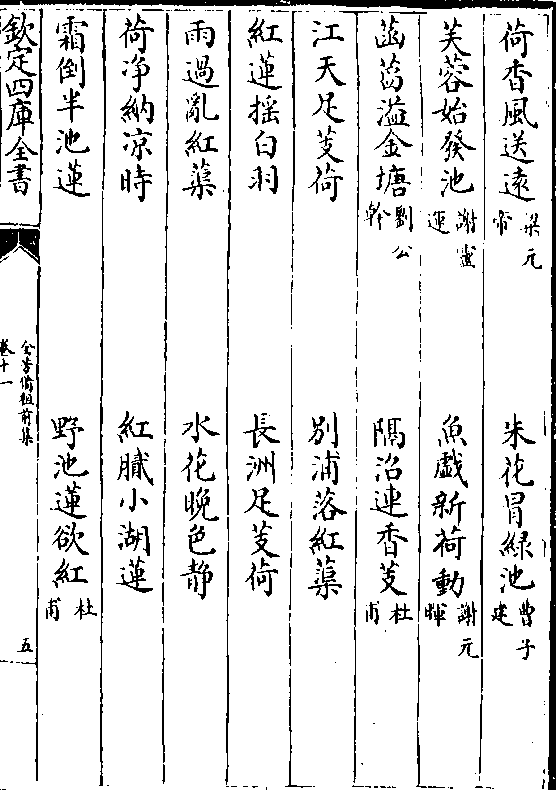 荷香風送遠梁元帝 朱花冒緑池曹子建
芙蓉始發池謝靈運 魚戲新荷動謝元暉
菡萏溢金塘劉公幹 隔沼連香芰杜甫
江天足芰荷 别浦落紅蕖
紅蓮揺白羽 長洲足芰荷
雨過亂紅蕖 水花晚色静
荷净納凉時 紅膩小湖蓮
霜倒半池蓮 野池蓮欲紅杜甫
欽定四庫全書 全芳備祖前集卷十一 五